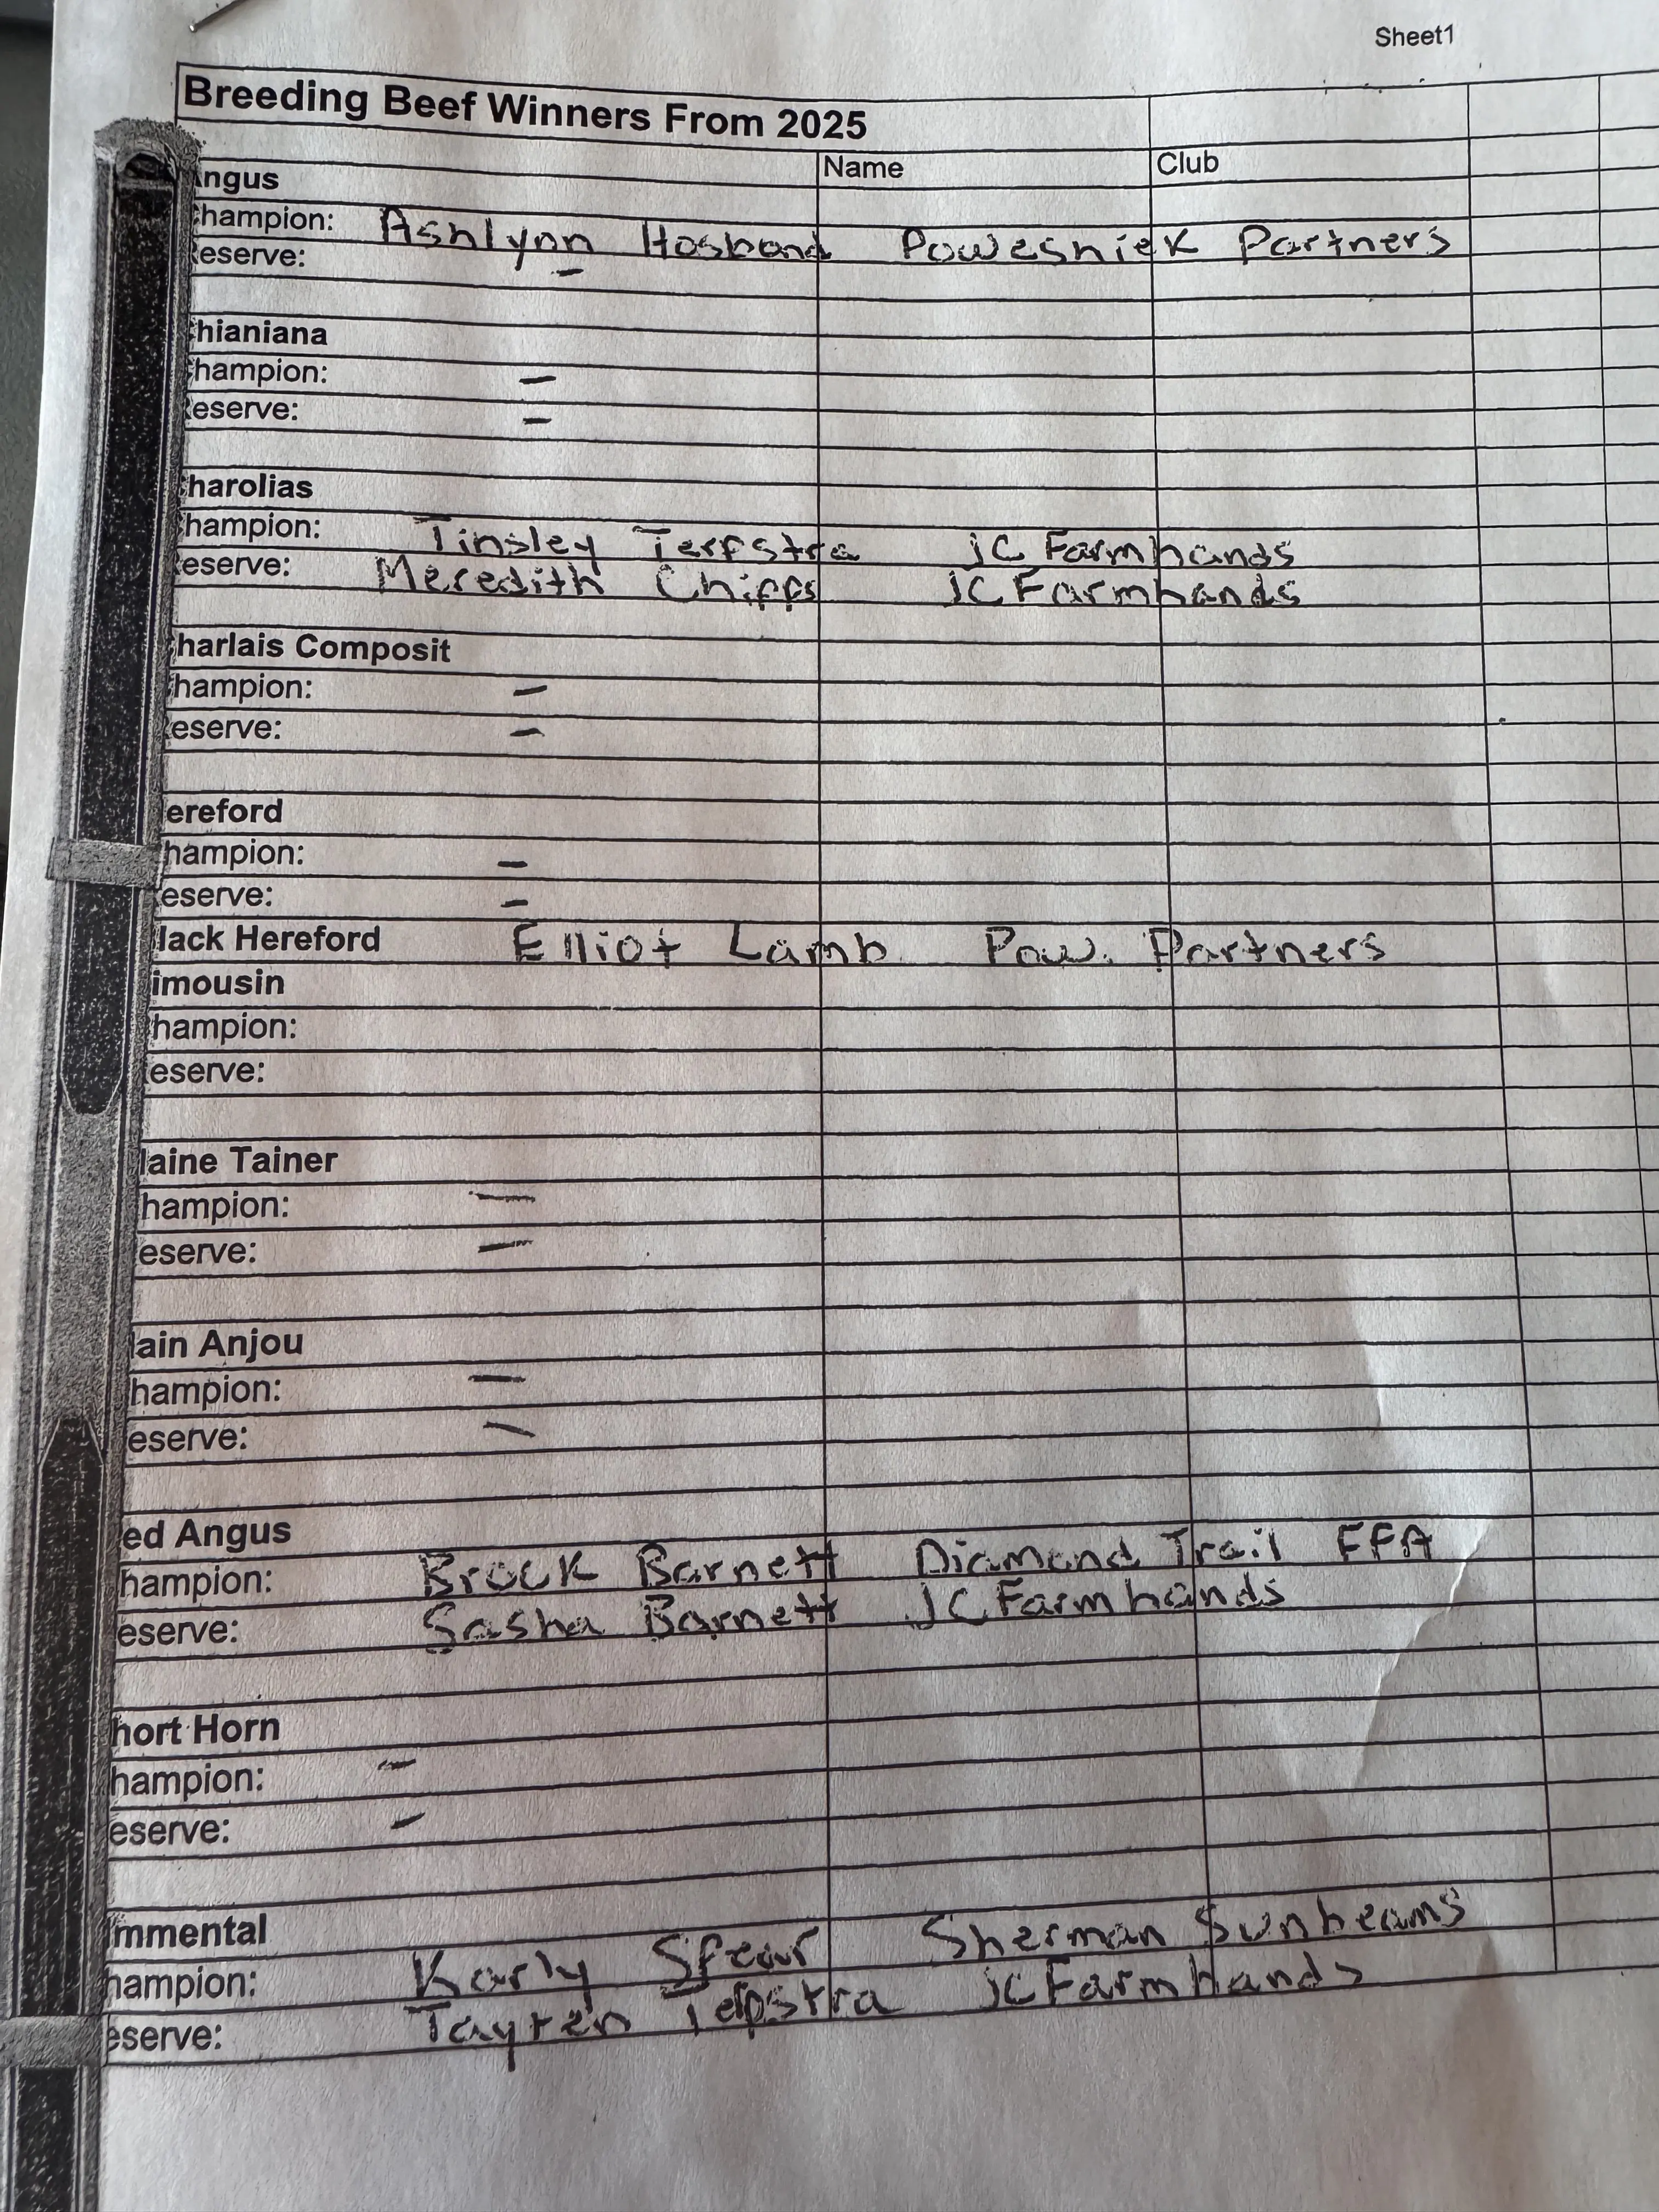 Sheet1
Breeding Beef Winners From 2025
Name Club
ngus
hampion: Ashlynn Hosband Poweshiek Partners
eserve: –
hianiana
hampion: –
eserve: –
harolias
hampion: Tinsley Terpstra JC Farmhands
eserve: Meredith Chipps JC Farmhands
harlais Composit
hampion: –
eserve: –
ereford
hampion: –
eserve: –
lack Hereford Elliot Lamb Pow. Partners
imousin
hampion:
eserve:
laine Tainer
hampion: –
eserve: –
lain Anjou
hampion: –
eserve: –
ed Angus
hampion: Brock Barnett Diamond Trail FFA
eserve: Sasha Barnett JC Farmhands
hort Horn
hampion: –
eserve: –
mmental
hampion: Karly Spear Sherman Sunbeams
eserve: Terpstra JC FarmHands